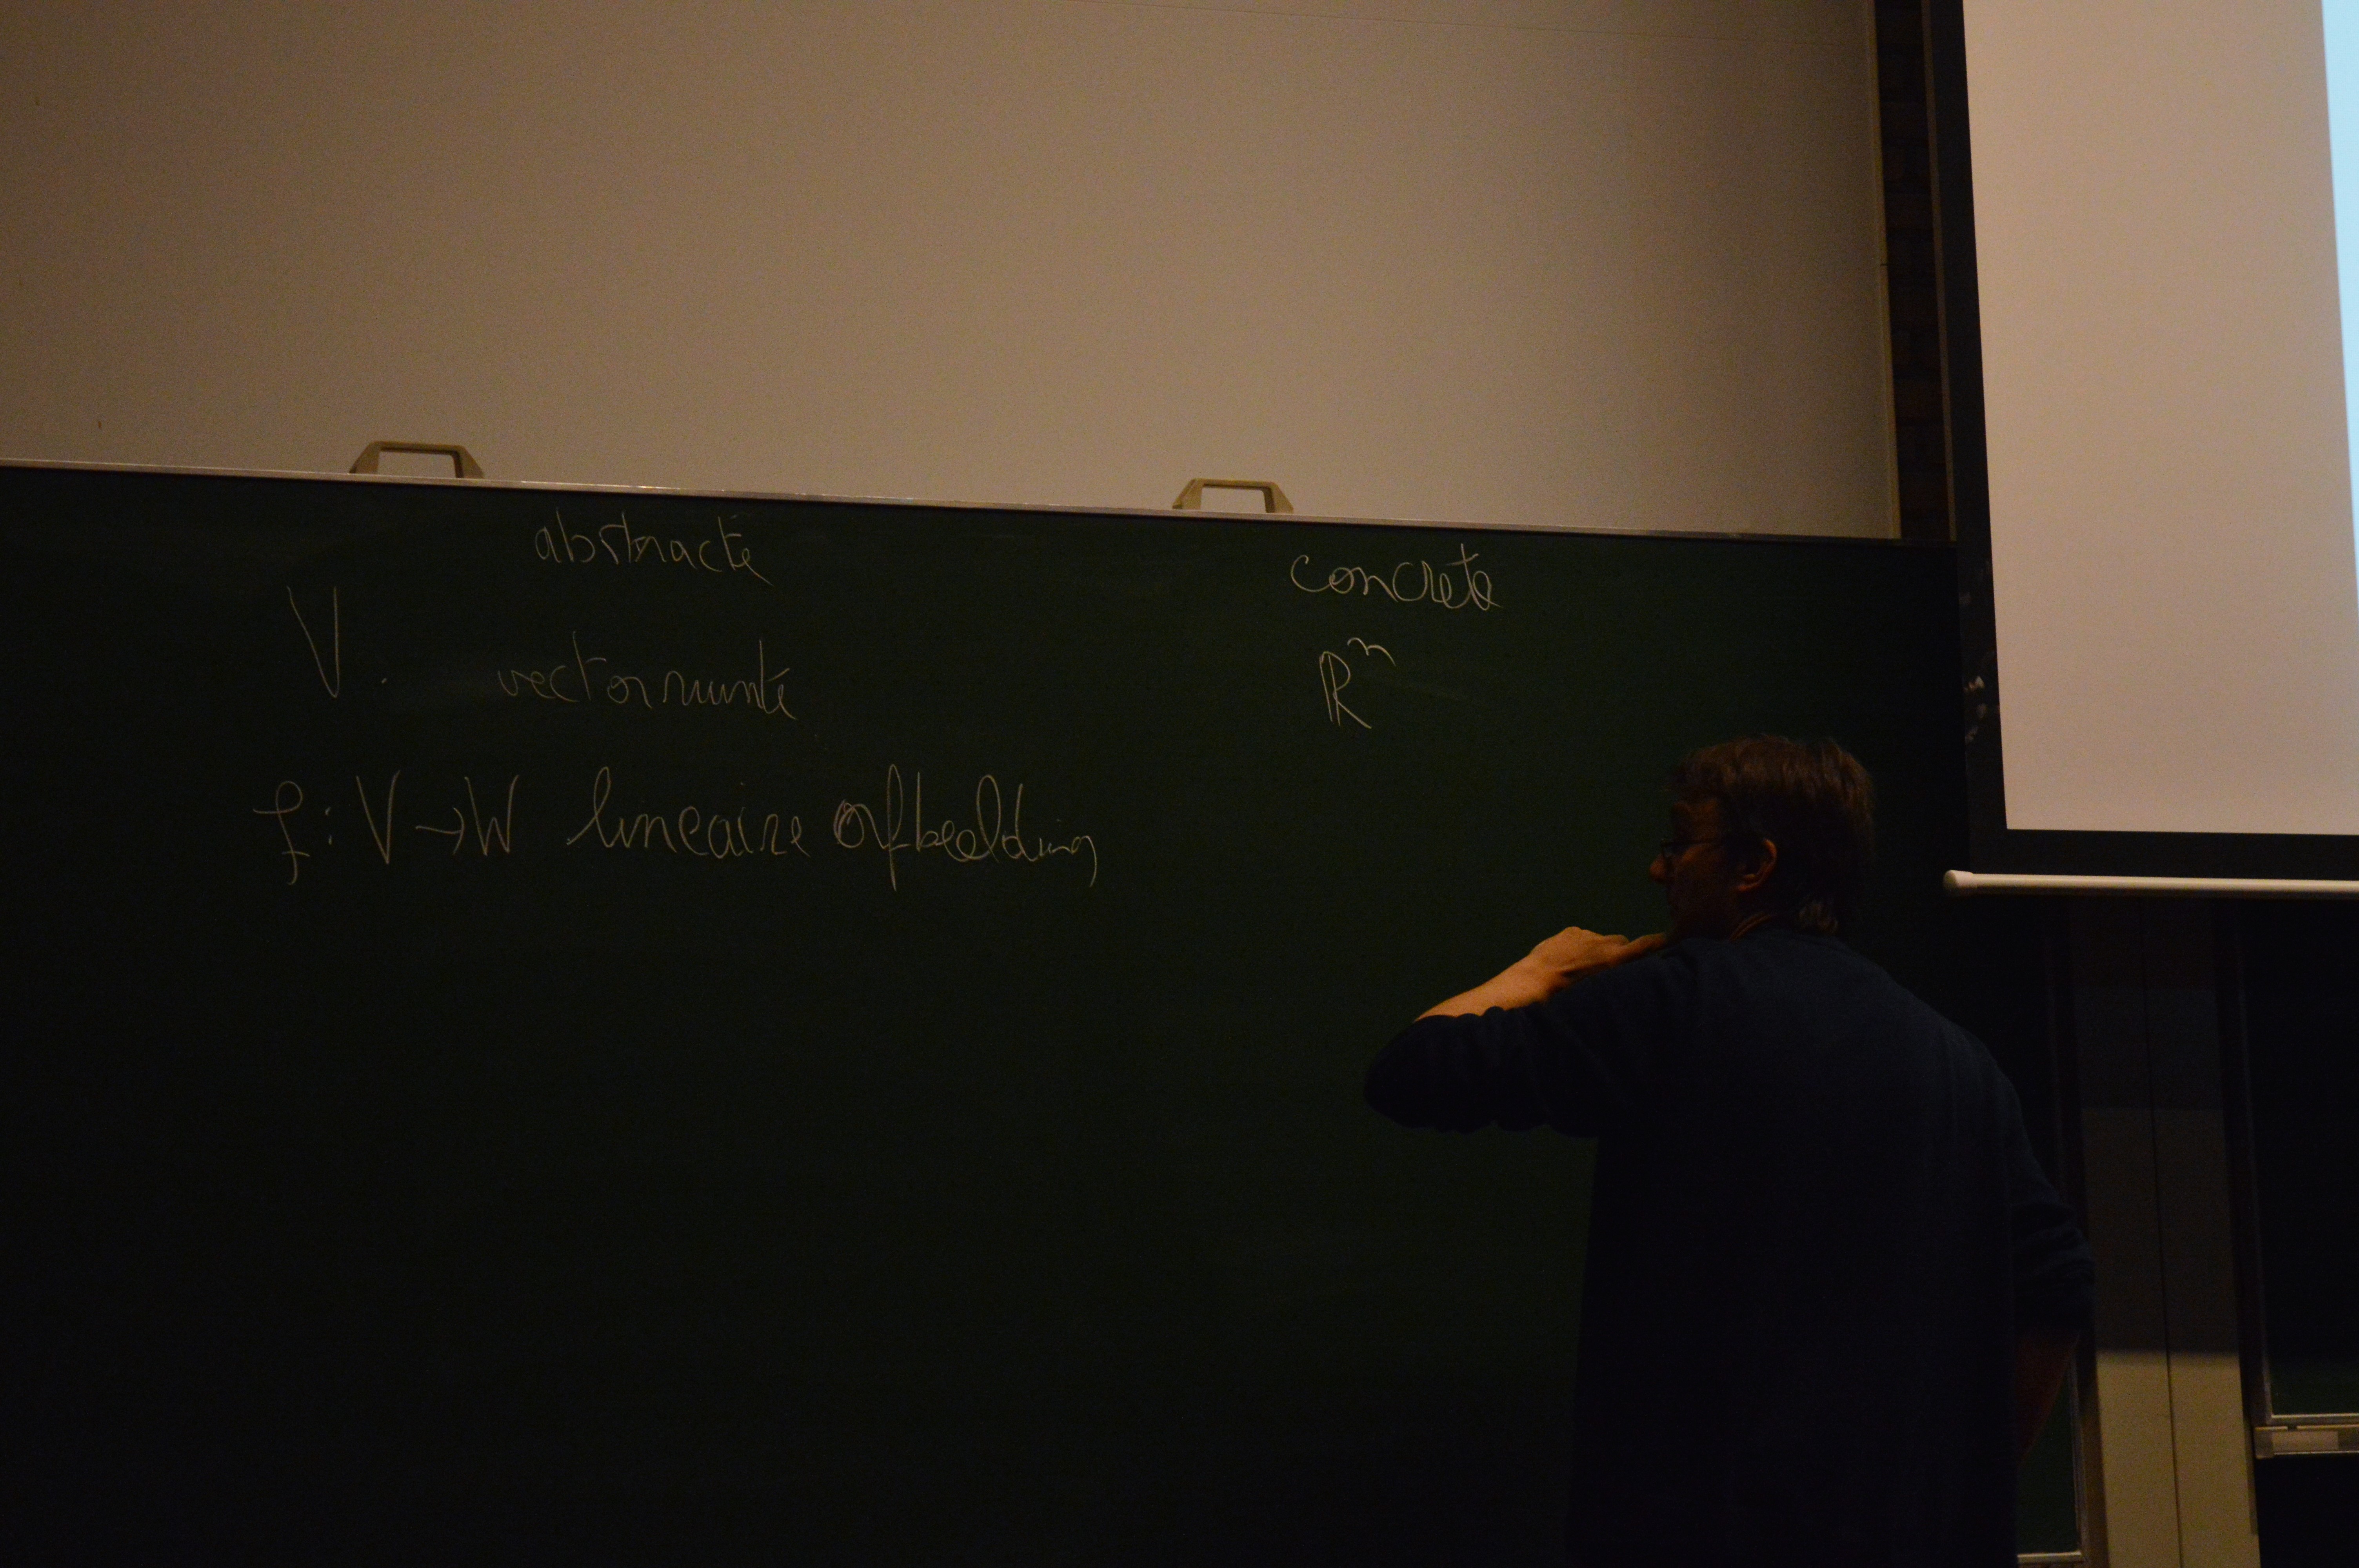 abstracte concrete
V. vectorruimte ℝⁿ
f: V → W lineaire afbeelding